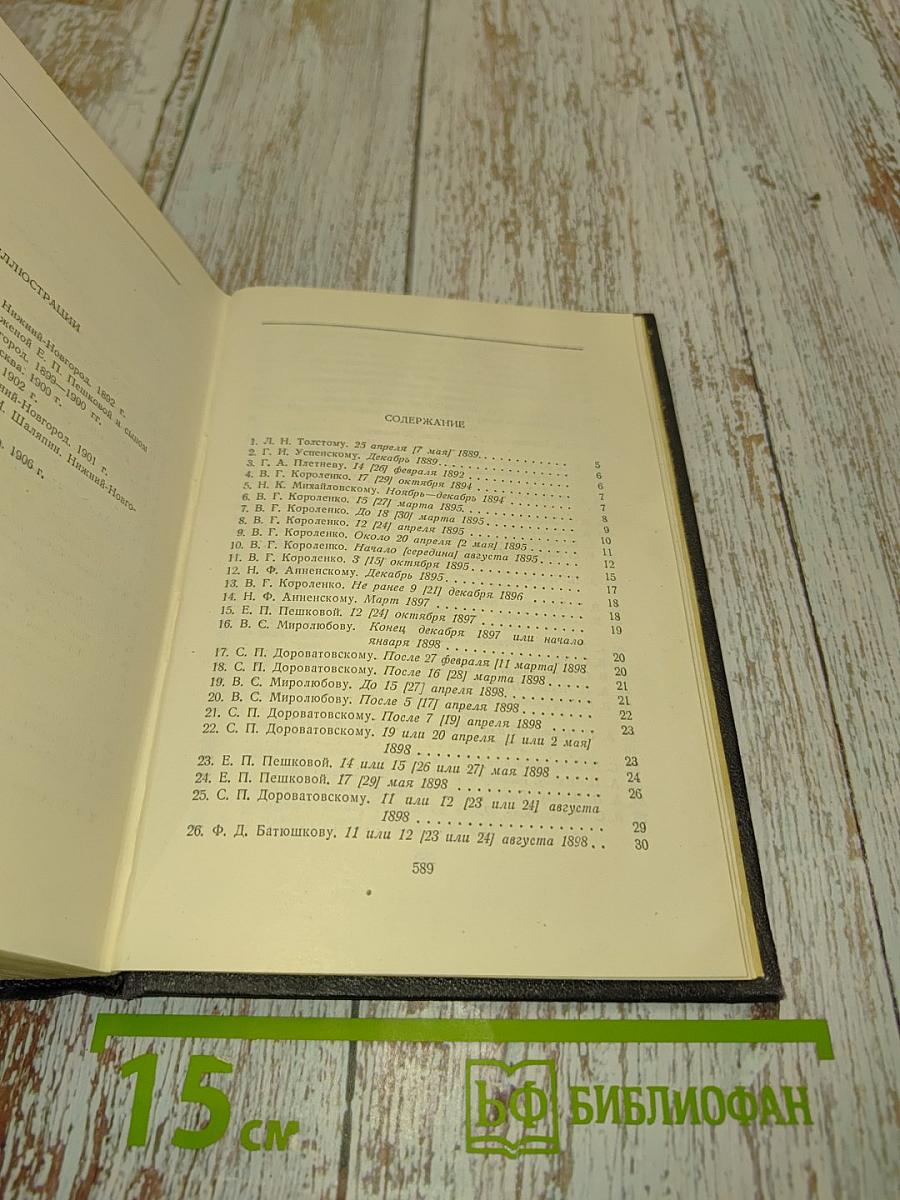 ИЛЛЮСТРАЦИИ
Нижний-Новгород. 1892 г.
женой Е. П. Пешковой и сыном
город. 1899—1900 гг.
сква. 1900 г.
1902 г.
ний-Новгород. 1901 г.
И. Шаляпин. Нижний-Новго-
1906 г.
СОДЕРЖАНИЕ
1. Л. Н. Толстому. 25 апреля [7 мая] 1889. 5
2. Г. И. Успенскому. Декабрь 1889 6
3. Г. А. Плетневу. 14 [26] февраля 1892 6
4. В. Г. Короленко. 17 [29] октября 1894 7
5. Н. К. Михайловскому. Ноябрь—декабрь 1894 7
6. В. Г. Короленко. 15 [27] марта 1895. 8
7. В. Г. Короленко. До 18 [30] марта 1895 9
8. В. Г. Короленко. 12 [24] апреля 1895 10
9. В. Г. Короленко. Около 20 апреля [2 мая] 1895 11
10. В. Г. Короленко. Начало [середина] августа 1895 12
11. В. Г. Короленко. 3 [15] октября 1895 15
12. Н. Ф. Анненскому. Декабрь 1895 17
13. В. Г. Короленко. Не ранее 9 [21] декабря 1896 18
14. Н. Ф. Анненскому. Март 1897 18
15. Е. П. Пешковой. 12 [24] октября 1897 19
16. В. С. Миролюбову. Конец декабря 1897 или начало
января 1898 20
17. С. П. Дороватовскому. После 27 февраля [11 марта] 1898 20
18. С. П. Дороватовскому. После 16 [28] марта 1898 21
19. В. С. Миролюбову. До 15 [27] апреля 1898. 21
20. В. С. Миролюбову. После 5 [17] апреля 1898 22
21. С. П. Дороватовскому. После 7 [19] апреля 1898 23
22. С. П. Дороватовскому. 19 или 20 апреля [1 или 2 мая]
1898 23
23. Е. П. Пешковой. 14 или 15 [26 или 27] мая 1898 24
24. Е. П. Пешковой. 17 [29] мая 1898 26
25. С. П. Дороватовскому. 11 или 12 [23 или 24] августа
1898 29
26. Ф. Д. Батюшкову. 11 или 12 [23 или 24] августа 1898 30
589
15 см
БФ БИБЛИОФАН